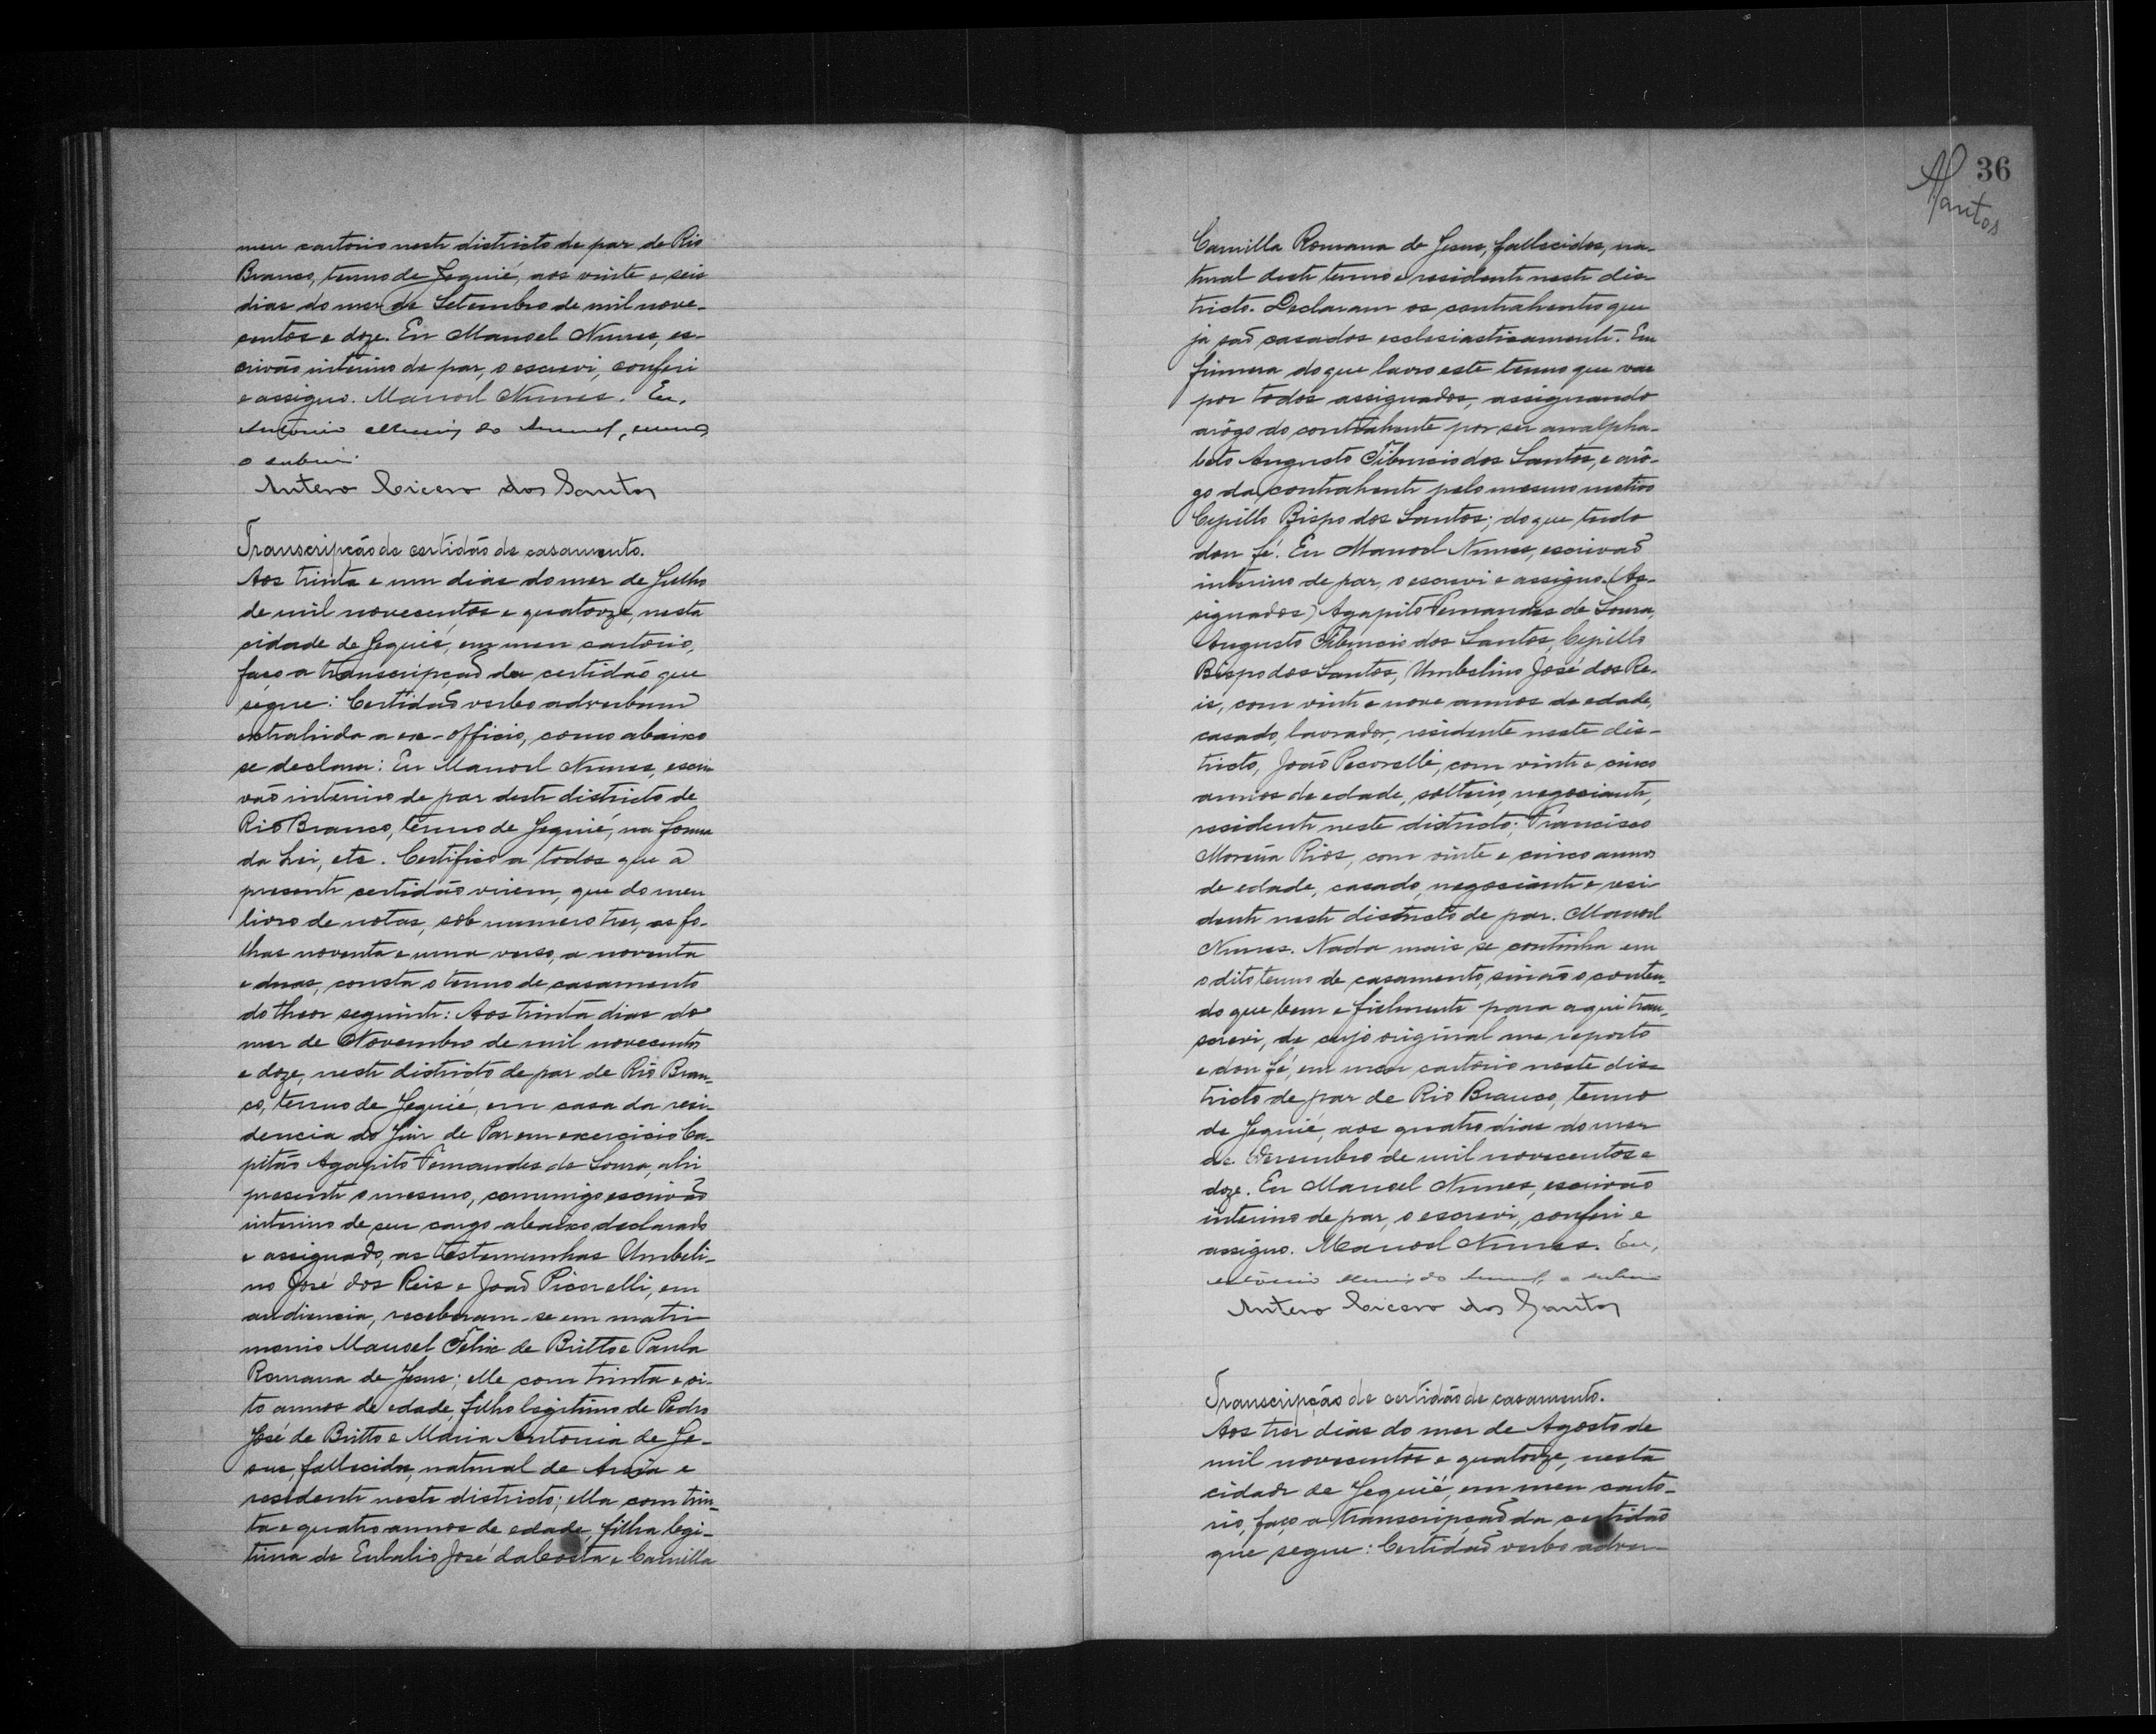 meu cartorio neste districto de paz de Rio
Branco, termo de Jequié, aos vinte e seis
dias do mez de Setembro de mil nove-
centos e doze. Eu Manoel Nunes, es-
crivão interino de paz, o escrevi, conferi
e assigno. Manoel Nunes. Eu,
Antonio do
o subscrevi.
Antero Cicero dos Santos
Transcripção de certidão de casamento.
Aos trinta e um dias do mez de Julho
de mil novecentos e quatorze, nesta
cidade de Jequié, em meu cartorio,
faço a transcripção da certidão que
segue: Certidão verbo adverbum
extrahida a ex-officio, como abaixo
se declara: Eu Manoel Nunes, escri
vão interino de paz deste districto de
Rio Branco, termo de Jequié, na forma
da Lei, etc. Certifico a todos que a
presente certidão virem, que do meu
livro de notas, sob numero trez, as fo-
lhas noventa e uma verso, a noventa
e duas, consta o termo de casamento
do theor seguinte: Aos trinta dias do
mez de Novembro de mil novecentos
e doze, neste districto de paz de Rio Bran-
co, termo de Jequié, em casa da resi-
dencia do Juiz de Paz em exercicio Ca-
pitão Agapito Fernandes de Souza, ahi
presente o mesmo, commigo escrivão
interino de seu cargo abaixo declarado
e assignado, as testemunhas Umbeli-
no José dos Reis e João Picorelli, em
audiencia, receberam-se em matri-
monio Manoel Felix de Britto e Paula
Romana de Jesus; elle com trinta e oi-
to annos de edade, filho legitimo de Pedro
José de Britto e Maria Antonia de Je-
sus, fallecidos, natural de Areia e
residente neste districto; ella com trin-
ta e quatro annos de edade, filha legi-
tima de Eulalio José da Costa e Camilla
36
Santos
Camilla Romana de Jesus, fallecidos, na-
tural deste termo e residente neste dis-
tricto. Declararam os contrahentes que
já são casados ecclesiasticamente. Em
firmesa do que lavro este termo que vae
por todos assignados, assignando
arôgo do contrahente por ser analpha-
beto Augusto Tiburcio dos Santos, e arô-
go da contrahente pelo mesmo motivo
Cyrillo Bispo dos Santos; do que tudo
dou fé. Eu Manoel Nunes, escrivão
interino de paz, o escrevi e assigno. (As-
signados) Agapito Fernandes de Souza,
Augusto Tiburcio dos Santos, Cyrillo
Bispo dos Santos, Umbelino José dos Re-
is, com vinte e nove annos de edade,
casado, lavrador, residente neste dis-
tricto, João Pecorelli, com vinte e cinco
annos de edade, solteiro, negociante,
residente neste districto; Francisco
Moreira Rios, com vinte e cinco annos
de edade, casado, negociante e resi-
dente neste districto de paz. Manoel
Nunes. Nada mais se continha em
o dito termo de casamento, sinão o conten-
do que bem e fielmente para aqui tran-
screvi, de cujo original me reporto
e dou fé, em meu cartorio neste dis-
tricto de paz de Rio Branco, termo
de Jequié, aos quatro dias do mez
de Dezembro de mil novecentos e
doze. Eu Manoel Nunes, escrivão
interino de paz, o escrevi, conferi e
assigno. Manoel Nunes. Eu,
Antonio do o subscrevi
Antero Cicero dos Santos
Transcripção de certidão de casamento.
Aos trez dias do mez de Agosto de
mil novecentos e quatorze, nesta
cidade de Jequié, em meu carto-
rio, faço a transcripção da certidão
que segue: Certidão verbo adver-